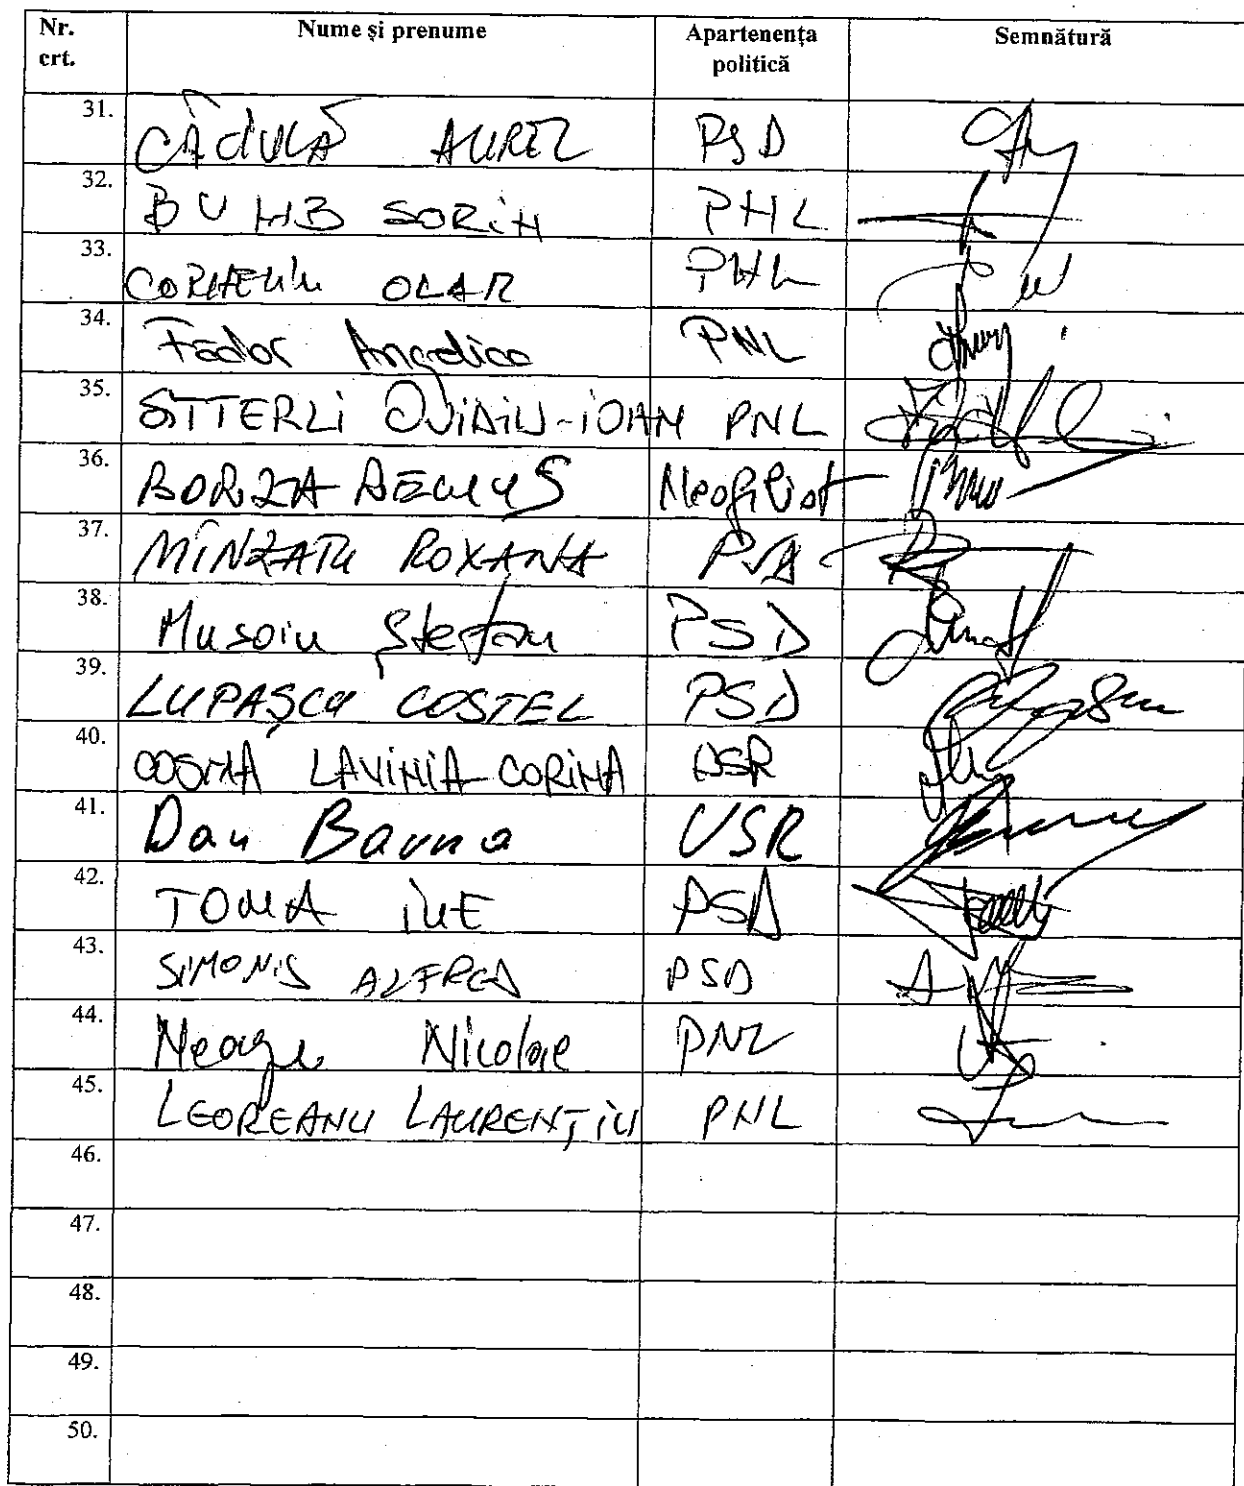 Nr. crt. Nume și prenume Apartenența politică Semnătură
31. CĂCIULĂ AUREL PSD
32. BUMB SORIN PNL
33. CORNELIU OLAR PNL
34. Fădor Angelica PNL
35. SITTERLI OVIDIU-IOAN PNL
36. BORZA REMUS Neafiliat
37. MÎNZATU ROXANA PSD
38. Musoiu Ștefan PSD
39. LUPAȘCU COSTEL PSD
40. COSMA LAVINIA-CORINA USR
41. Dan Barna USR
42. TOMA ILIE PSD
43. SIMONIS ALFRED PSD
44. Neagu Nicolae PNL
45. LEOREANU LAURENȚIU PNL
46.
47.
48.
49.
50.